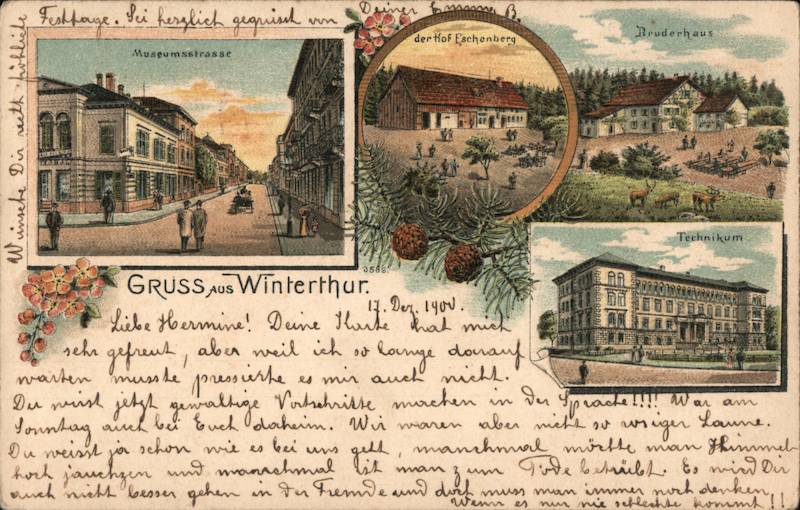 Festtage. Sei herzlich gegrüsst von Deiner Emma B.
Wünsche Dir recht fröhliche
Museumsstrasse
der Hof Eschenberg
Bruderhaus
Technikum
3588.
GRUSS AUS WINTERTHUR.
17. Dez. 1900.
Liebe Hermine! Deine Karte hat mich
sehr gefreut, aber weil ich so lange darauf
warten musste pressierte es mir auch nicht.
Du wirst jetzt gewaltige Vortschritte machen in der Sprache!!!! War am
Sonntag auch bei Euch daheim. Wir waren aber nicht so rosiger Laune.
Du weisst ja schon wie es bei uns geht, manchmal möchte man Himmel-
hoch jauchzen und manchmal ist man zum Tode betrübt. Es wird Dir
auch nicht besser gehen in der Fremde und doch muss man immer noch denken,
Wenn es nur nie schlechter kommt!!